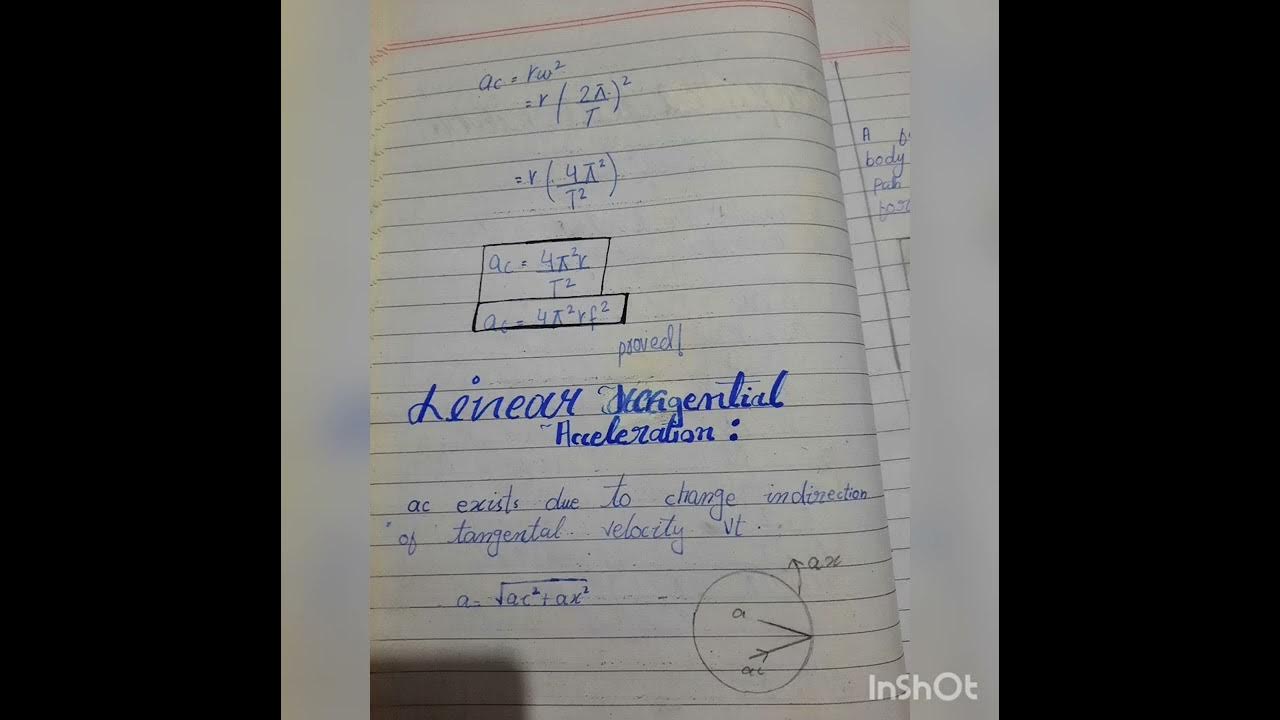 ac = rω²
= r (2π/T)²
= r (4π²/T²)
ac = 4π²r/T²
ac = 4π²rf²
proved!
Linear Tangential
Acceleration :
ac exists due to change indirection
of tangental velocity Vt .
a = √ac²+ax²
ax
a
ac
A
body
Path
InShOt